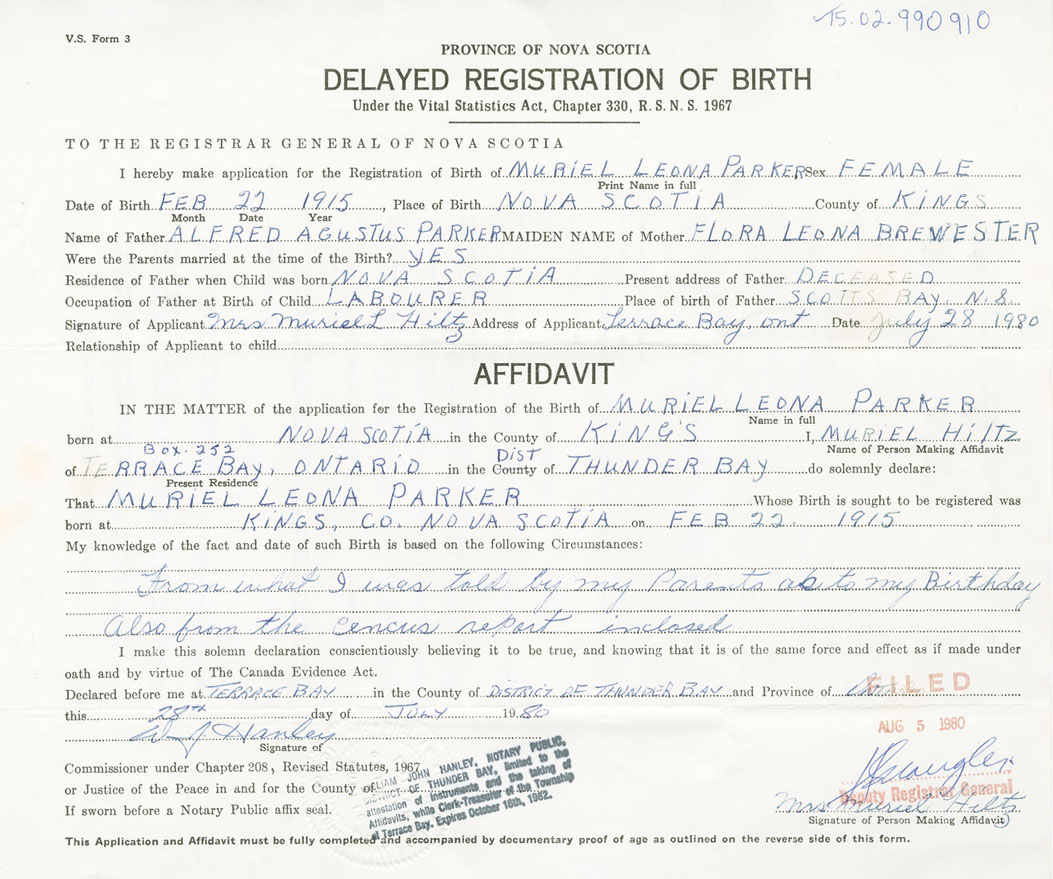 15.02.990910
V.S. Form 3
PROVINCE OF NOVA SCOTIA
DELAYED REGISTRATION OF BIRTH
Under the Vital Statistics Act, Chapter 330, R. S. N. S. 1967
TO THE REGISTRAR GENERAL OF NOVA SCOTIA
I hereby make application for the Registration of Birth of MURIEL LEONA PARKER Sex FEMALE
Print Name in full
Date of Birth FEB 22 1915, Place of Birth NOVA SCOTIA County of KINGS
Month Date Year
Name of Father ALFRED AGUSTUS PARKER MAIDEN NAME of Mother FLORA LEONA BREWESTER
Were the Parents married at the time of the Birth? YES
Residence of Father when Child was born NOVA SCOTIA Present address of Father DECEASED
Occupation of Father at Birth of Child LABOURER Place of birth of Father SCOTTS BAY. N.S.
Signature of Applicant Mrs Muriel L Hiltz Address of Applicant Terrace Bay, ont Date July 28 1980
Relationship of Applicant to child
AFFIDAVIT
IN THE MATTER of the application for the Registration of the Birth of MURIEL LEONA PARKER
Name in full
born at NOVA SCOTIA in the County of KING'S I, MURIEL HILTZ
Box. 252 DIST Name of Person Making Affidavit
of TERRACE BAY, ONTARIO in the County of THUNDER BAY do solemnly declare:
Present Residence
That MURIEL LEONA PARKER Whose Birth is sought to be registered was
born at KINGS, CO. NOVA SCOTIA on FEB 22. 1915
My knowledge of the fact and date of such Birth is based on the following Circumstances:
From what I was told by my Parents as to my Birthday
Also from the cencus report inclosed
I make this solemn declaration conscientiously believing it to be true, and knowing that it is of the same force and effect as if made under
oath and by virtue of The Canada Evidence Act.
Declared before me at TERRACE BAY in the County of DISTRICT OF THUNDER BAY and Province of
FILED
this 28th day of JULY 1980
AUG 5 1980
W J Hanley
Signature of
Commissioner under Chapter 208, Revised Statutes, 1967
or Justice of the Peace in and for the County of
If sworn before a Notary Public affix seal.
LIAM JOHN HANLEY, NOTARY PUBLIC,
DISTRICT OF THUNDER BAY, limited to the
attestation of instruments and the taking of
Affidavits, while Clerk-Treasurer of the Township
of Terrace Bay. Expires October 16th, 1982.
Deputy Registrar General
Mrs Muriel Hiltz
Signature of Person Making Affidavit
This Application and Affidavit must be fully completed and accompanied by documentary proof of age as outlined on the reverse side of this form.